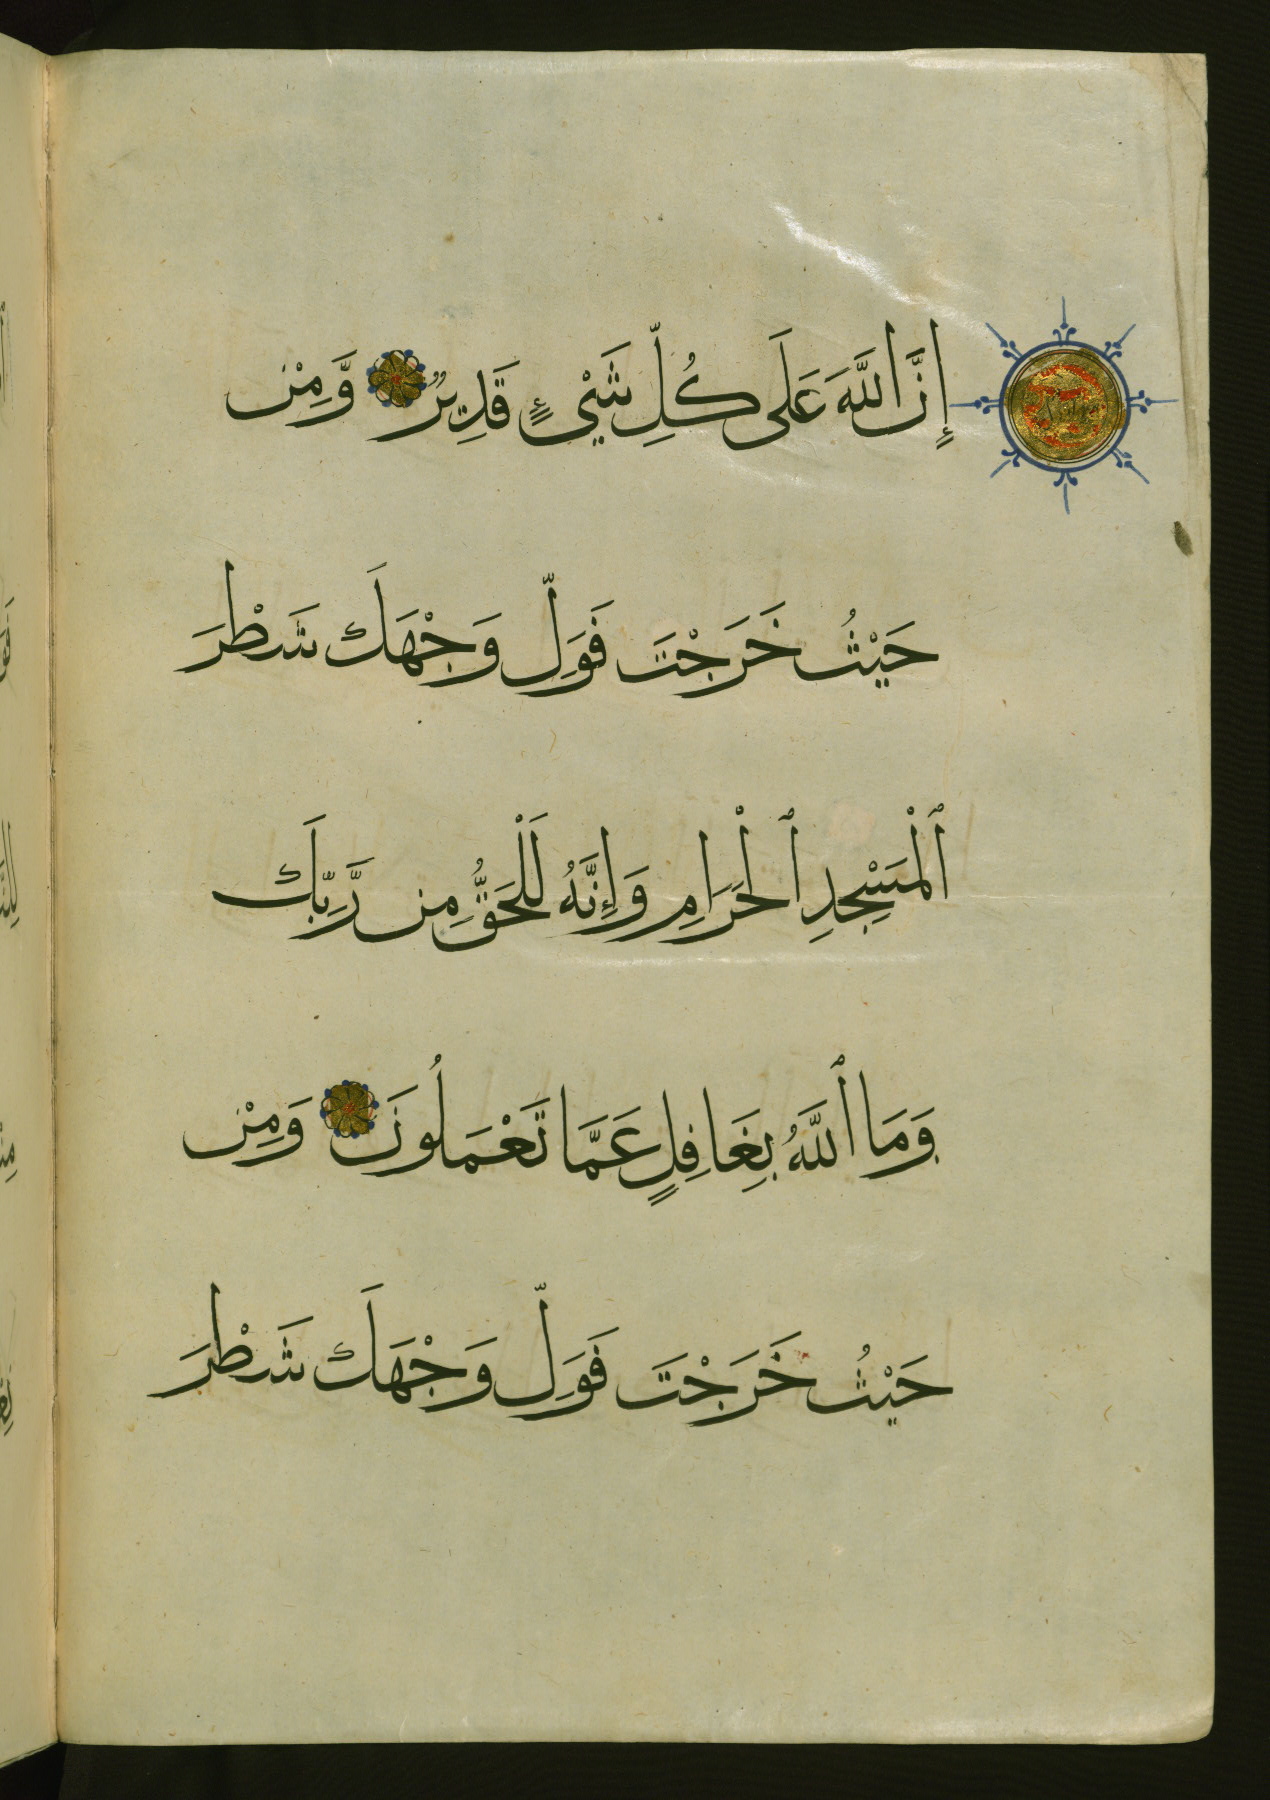 إِنَّ اللَّهَ عَلَى كُلِّ شَيْءٍ قَدِيرٌ وَّمِنْ
حَيْثُ خَرَجْتَ فَوَلِّ وَجْهَكَ شَطْرَ
ٱلْمَسْجِدِ ٱلْحَرَامِ وَإِنَّهُ لَلْحَقُّ مِن رَّبِّكَ
وَمَا ٱللَّهُ بِغَافِلٍ عَمَّا تَعْمَلُونَ وَمِنْ
حَيْثُ خَرَجْتَ فَوَلِّ وَجْهَكَ شَطْرَ